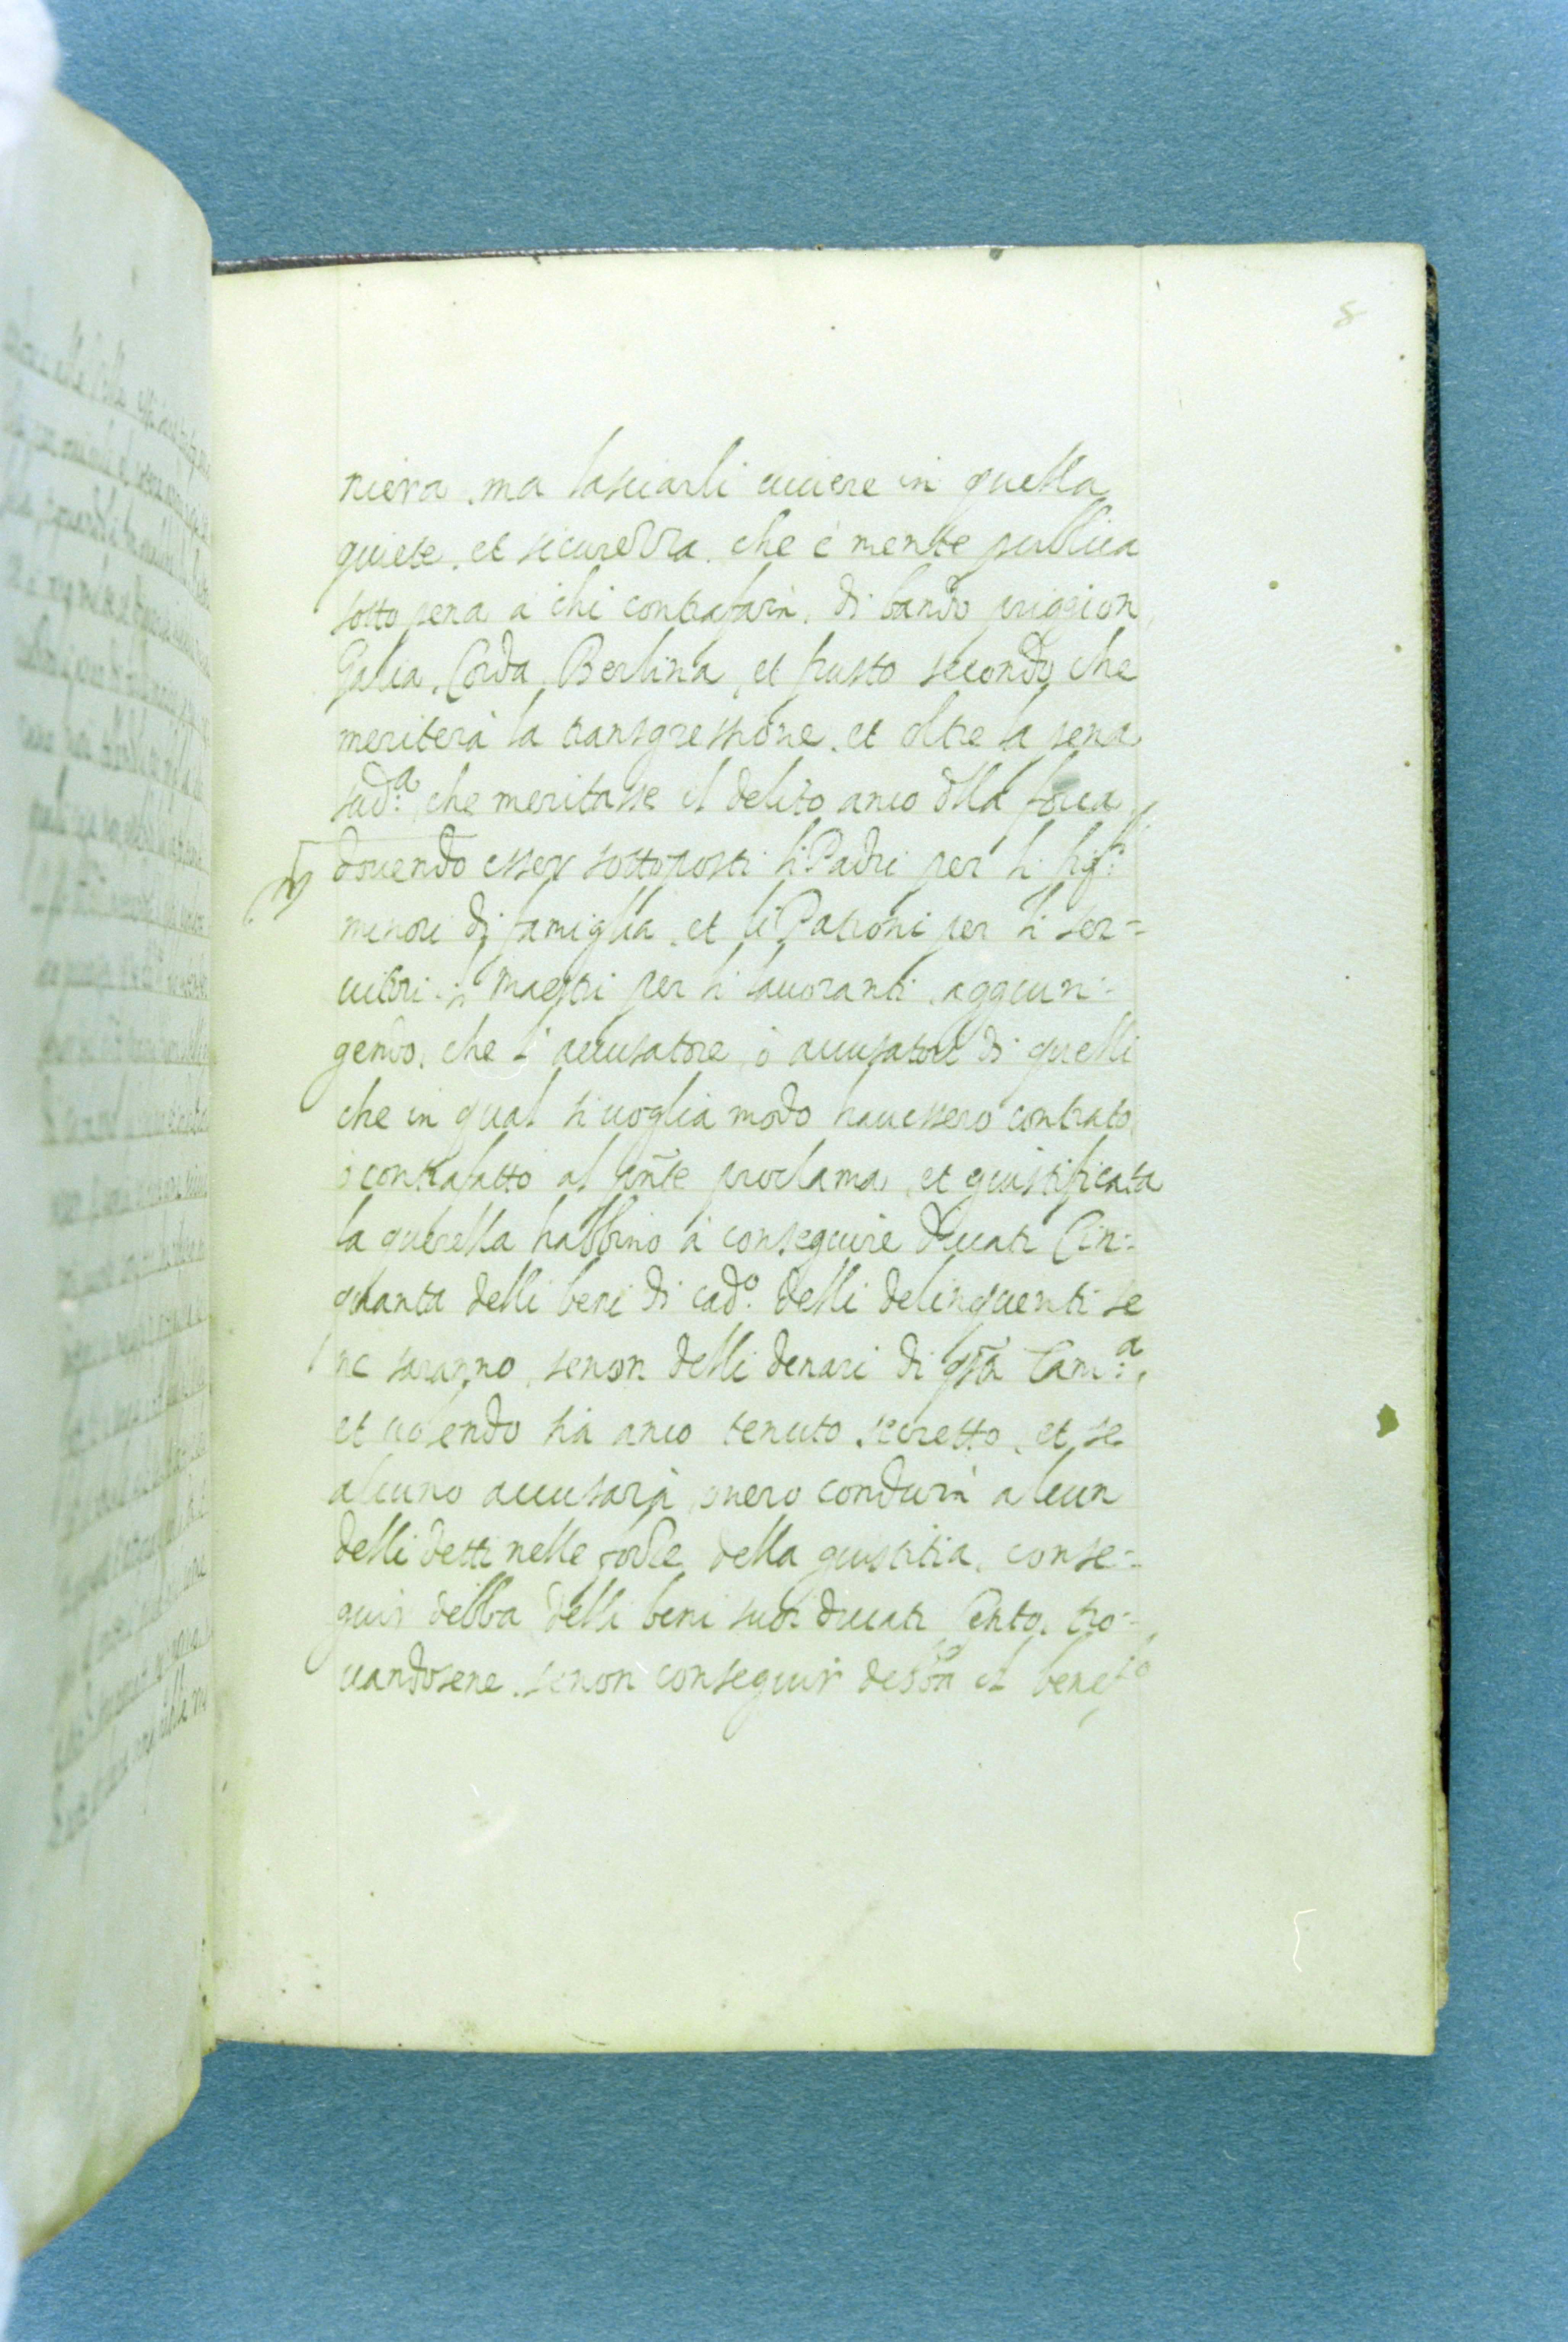 8
niera, ma lasciarli viuere in quella
quiete, et sicurezza, che è mente publica
sotto pena à chi contrafarà, di bando priggion,
Galia, Corda, Berlina, et frusto secondo che
meriterà la transgressione, et oltre la pena
sud:ª, che meritasse il delito anco dlla forca,
douendo esser sottoposti li Padri per li figl:
minori di famiglia, et li Patroni per li ser-
uitori, i Maestri per li lauoranti, aggiun-
gendo, che l'accusatore, ò accusatori di quelli
che in qual si uoglia modo hauessero contrato
ò contrafatto al pñte proclama, et giustificata
la querella habbino à conseguire ducati Cin-
quanta delli beni di cad:º delli delinquenti se
ne saranno, senon delli denari di qsta Cam:ª,
et uolendo sia anco tenuto secretto, et se
alcuno accusarà, ouero condurà alcun
delli detti nelle forze della giustitia, conse-
guir debba delli beni sudi ducati Cento, tro-
uandosene, senon conseguir debba il benef:º